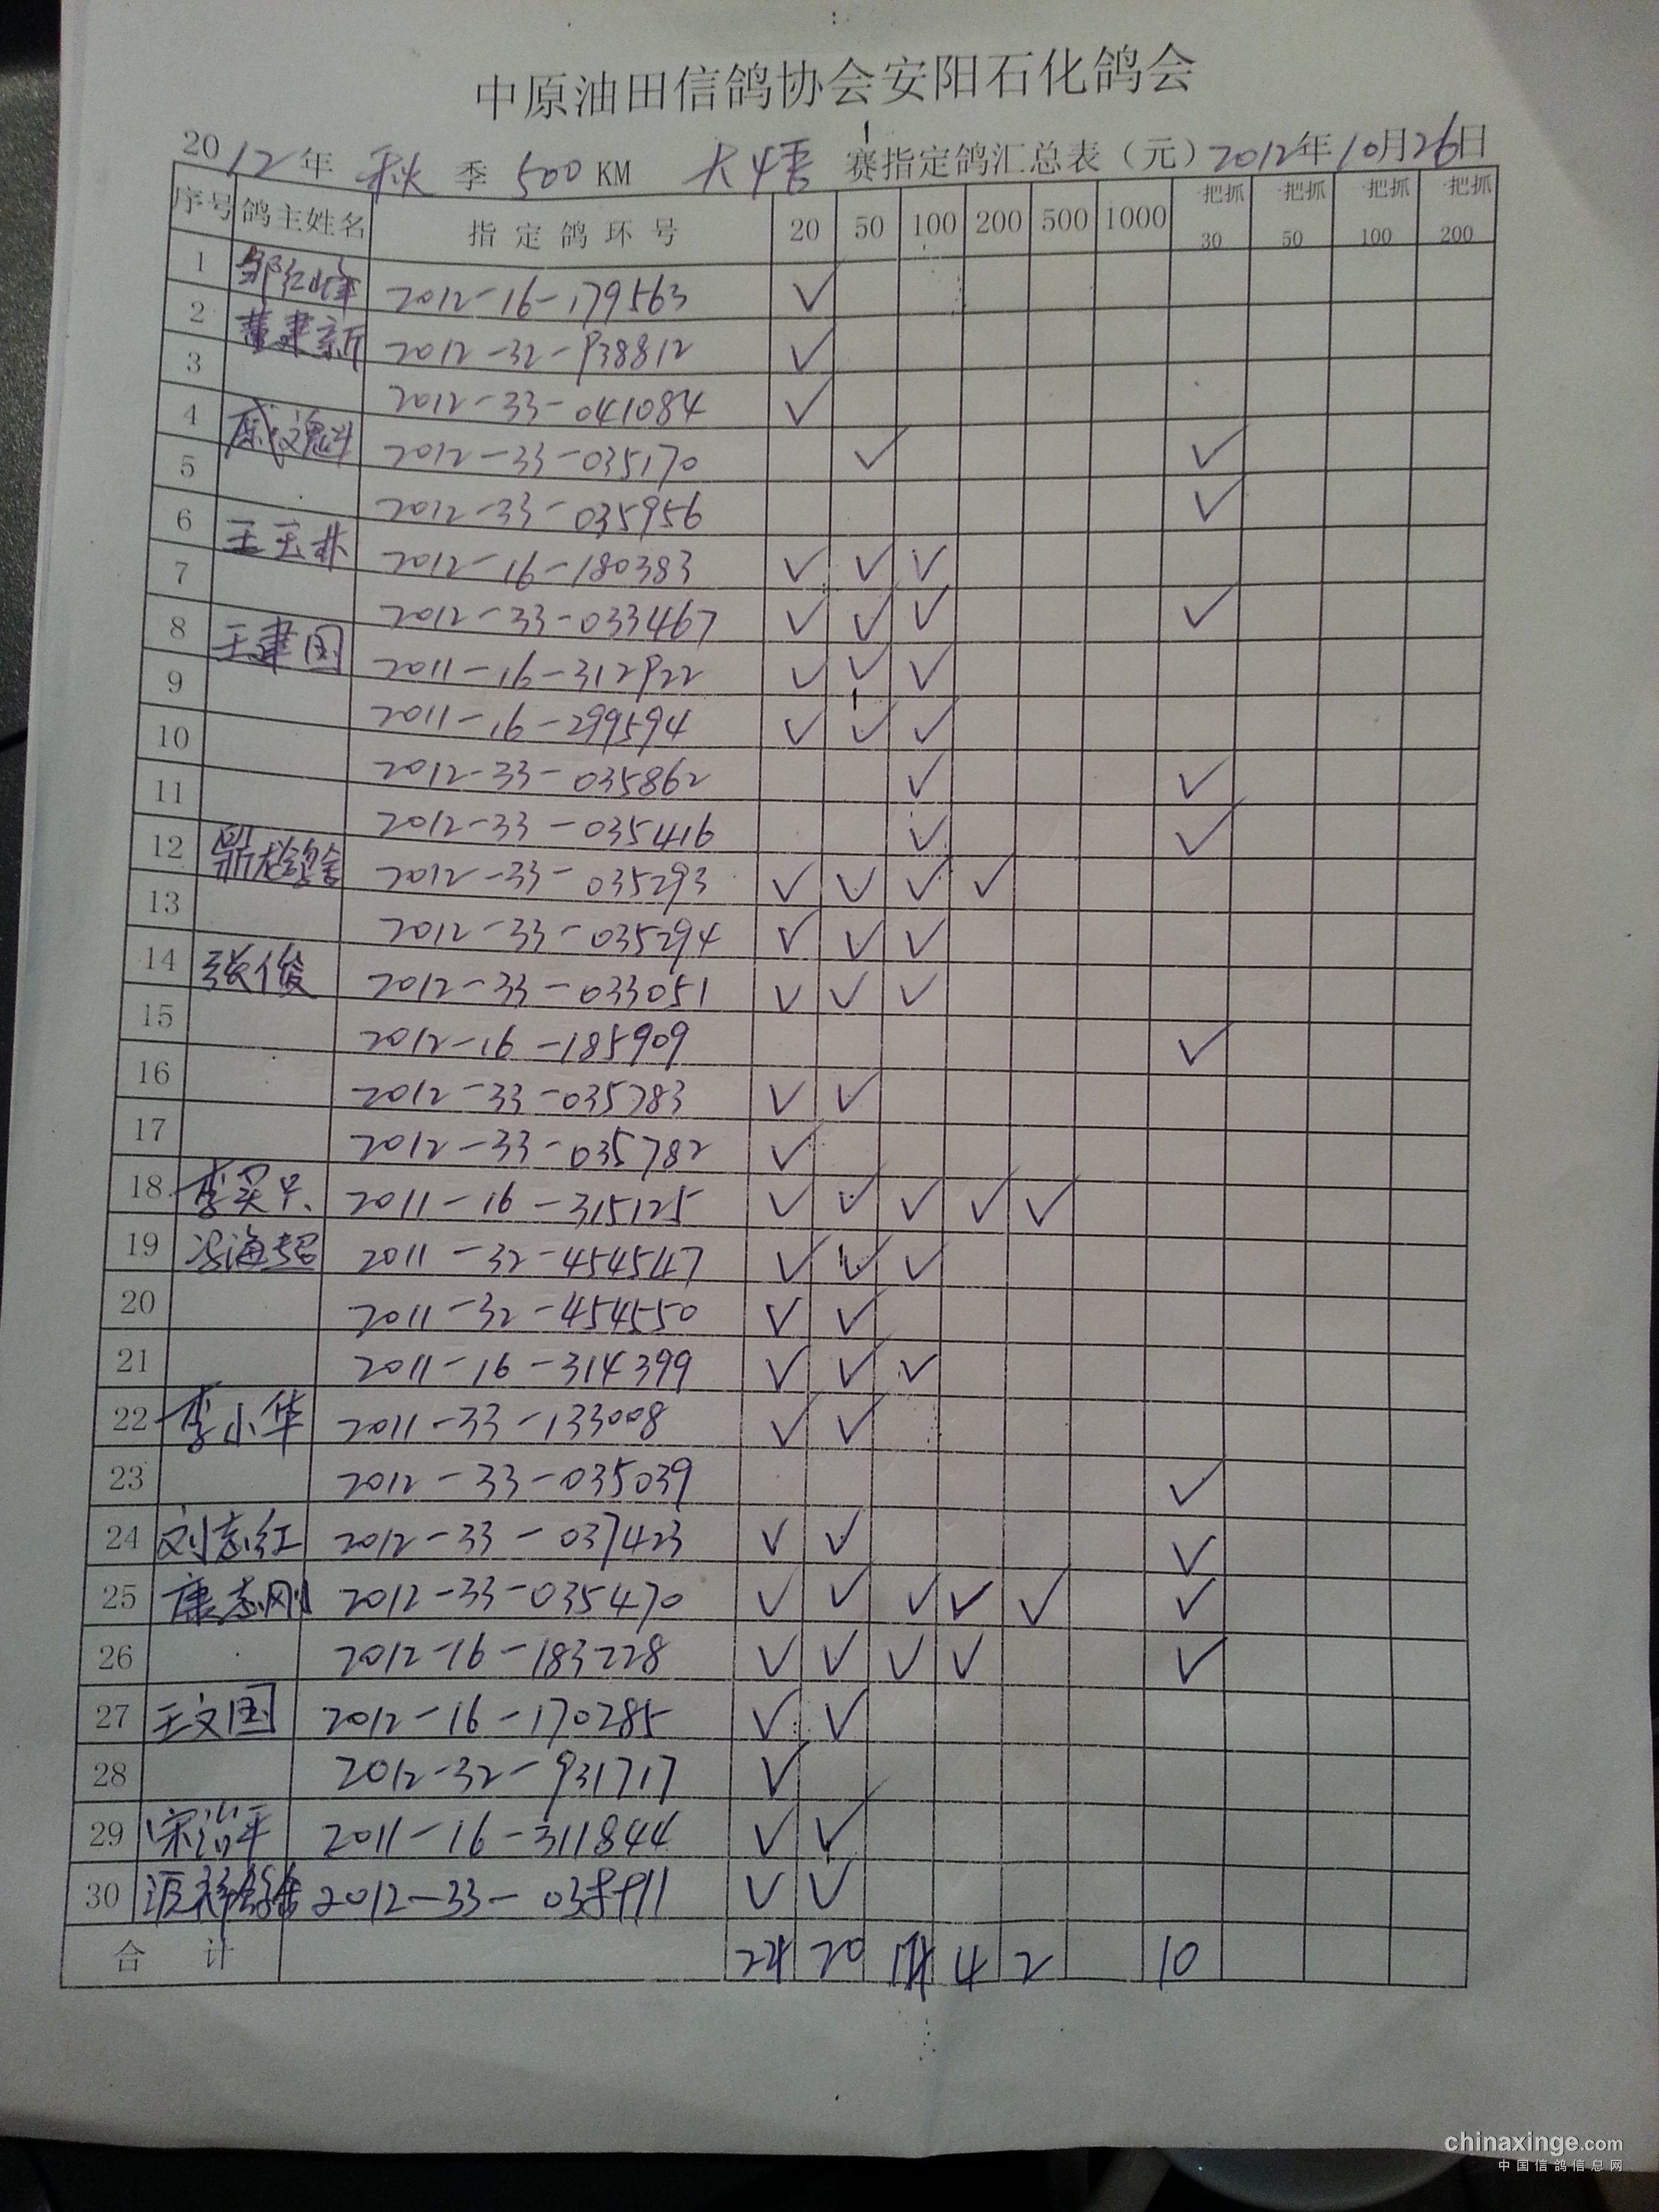 中原油田信鸽协会安阳石化鸽会
2012年 秋 季 500 KM 大悟 赛指定鸽汇总表（元）2012年10月26日
序号 鸽主姓名 指定鸽环号 20 50 100 200 500 1000 把抓30 把抓50 把抓100 把抓200
1 邹红峰 2012-16-179563 ✓
2 董建新 2012-32-938812 ✓
3 2012-33-041084 ✓
4 2012-33-035170 ✓ ✓
5 2012-33-035956 ✓
6 王玉林 2012-16-180383 ✓ ✓ ✓
7 2012-33-033467 ✓ ✓ ✓ ✓
8 王建国 2011-16-312922 ✓ ✓ ✓
9 2011-16-299594 ✓ ✓ ✓
10 2012-33-035862 ✓ ✓
11 2012-33-035416 ✓ ✓
12 鼎龙鸽舍 2012-33-035293 ✓ ✓ ✓ ✓
13 2012-33-035294 ✓ ✓ ✓
14 张俊 2012-33-033051 ✓ ✓ ✓
15 2012-16-185909 ✓
16 2012-33-035783 ✓ ✓
17 2012-33-035782 ✓
18 2011-16-315125 ✓ ✓ ✓ ✓ ✓
19 冯海超 2011-32-454547 ✓ ✓ ✓
20 2011-32-454550 ✓ ✓
21 2011-16-314399 ✓ ✓ ✓
22 李小华 2011-33-133008 ✓ ✓
23 2012-33-035039 ✓
24 刘志红 2012-33-037423 ✓ ✓ ✓
25 康志刚 2012-33-035470 ✓ ✓ ✓ ✓ ✓ ✓
26 2012-16-183228 ✓ ✓ ✓ ✓ ✓
27 王文国 2012-16-170285 ✓ ✓
28 2012-32-931717 ✓
29 宋治平 2011-16-311844 ✓ ✓
30 2012-33- ✓ ✓
合计 20 4 2 10
chinaxinge.com
中国信鸽信息网